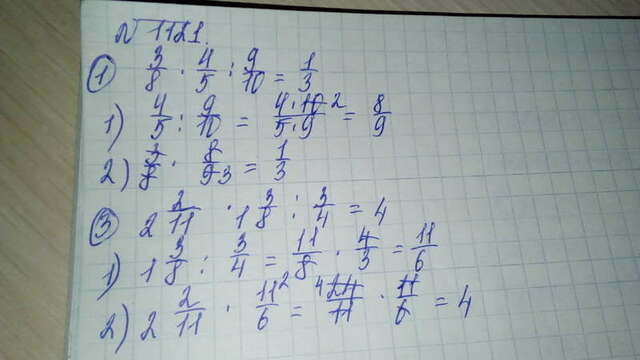 № 1182.
① 3/8 · 4/5 : 9/10 = 1/3
1) 4/5 : 9/10 = 4·10 2/5·9 = 8/9
2) 3/8 · 8/9 3 = 1/3
③ 2 2/11 · 1 3/8 : 3/4 = 4
1) 1 3/8 : 3/4 = 11/8 2 · 4/3 = 11/6
2) 2 2/11 · 11/6 = 4 24/11 · 11/6 = 4